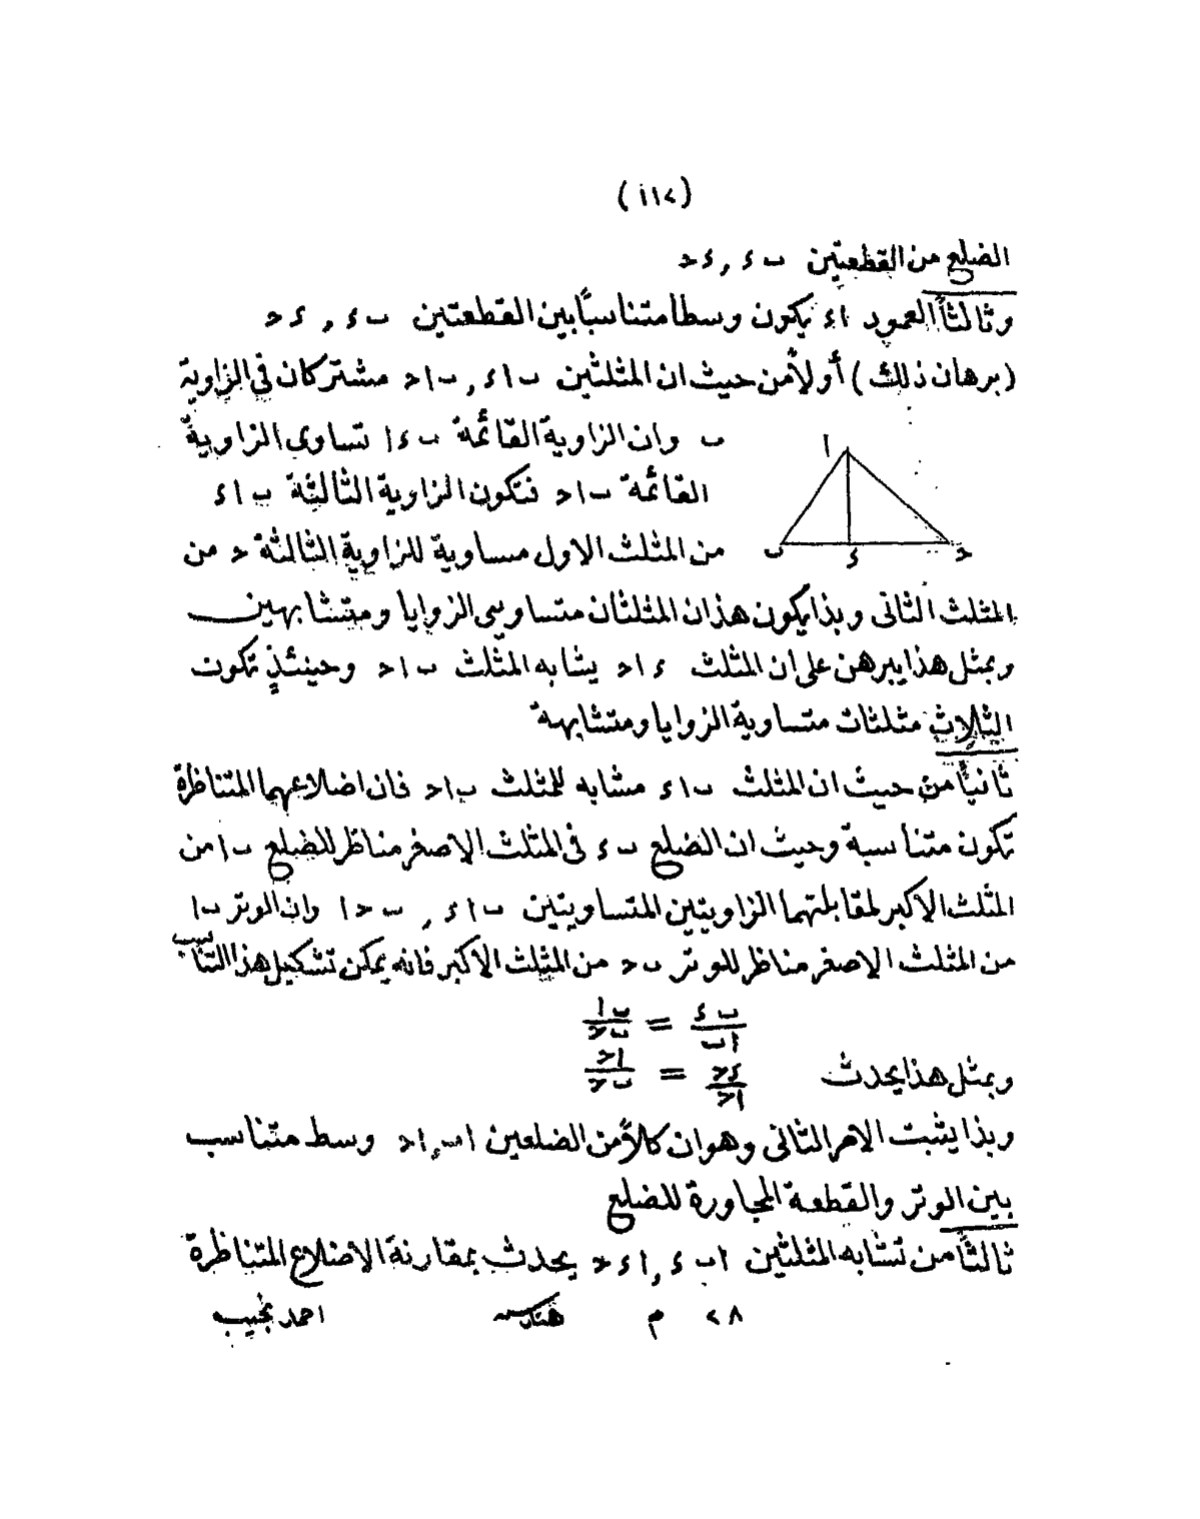 (٢١٧)
الضلع من القطعتين ب ء , ء ح
وثالثاً العمود ا ء يكون وسطا متناسبًا بين القطعتين ب ء , ء ح
(برهان ذلك) أولاً من حيث ان المثلثين ب ا ء , ب ا ح مشتركان في الزاوية
ب وان الزاوية القائمة ب ء ا تساوى الزاوية
القائمة ب ا ح فتكون الزاوية الثالثة ب ا ء
من المثلث الاول مساوية للزاوية الثالثة ح من
ا
ب ء ح
المثلث الثانى وبذا يكون هذان المثلثان متساويى الزوايا ومتشابهين
وبمثل هذا يبرهن على ان المثلث ء ا ح يشابه المثلث ب ا ح وحينئذٍ تكون
الثلاث مثلثات متساوية الزوايا ومتشابهة
ثانياً من حيث ان المثلث ب ا ء مشابه للمثلث ب ا ح فان اضلاعهما المتناظرة
تكون متناسبة وحيث ان الضلع ب ء فى المثلث الاصغر مناظر للضلع ب ا من
المثلث الاكبر لمقابلتهما الزاويتين المتساويتين ب ا ء , ب ح ا وان الوتر ب ا
من المثلث الاصغر مناظر للوتر ب ح من المثلث الاكبر فانه يمكن تشكيل هذا التناسب
ب ء / ا ب = ب ا / ب ح
وبمثل هذا يحدث ء ح / ا ح = ا ح / ب ح
وبذا يثبت الامر الثانى وهو ان كلاً من الضلعين ا ب , ا ح وسط متناسب
بين الوتر والقطعة المجاورة للضلع
ثالثاً من تشابه المثلثين ا ب ء , ا ء ح يحدث بمقارنة الاضلاع المتناظرة
٢٨ م هندسه احمد نجيب